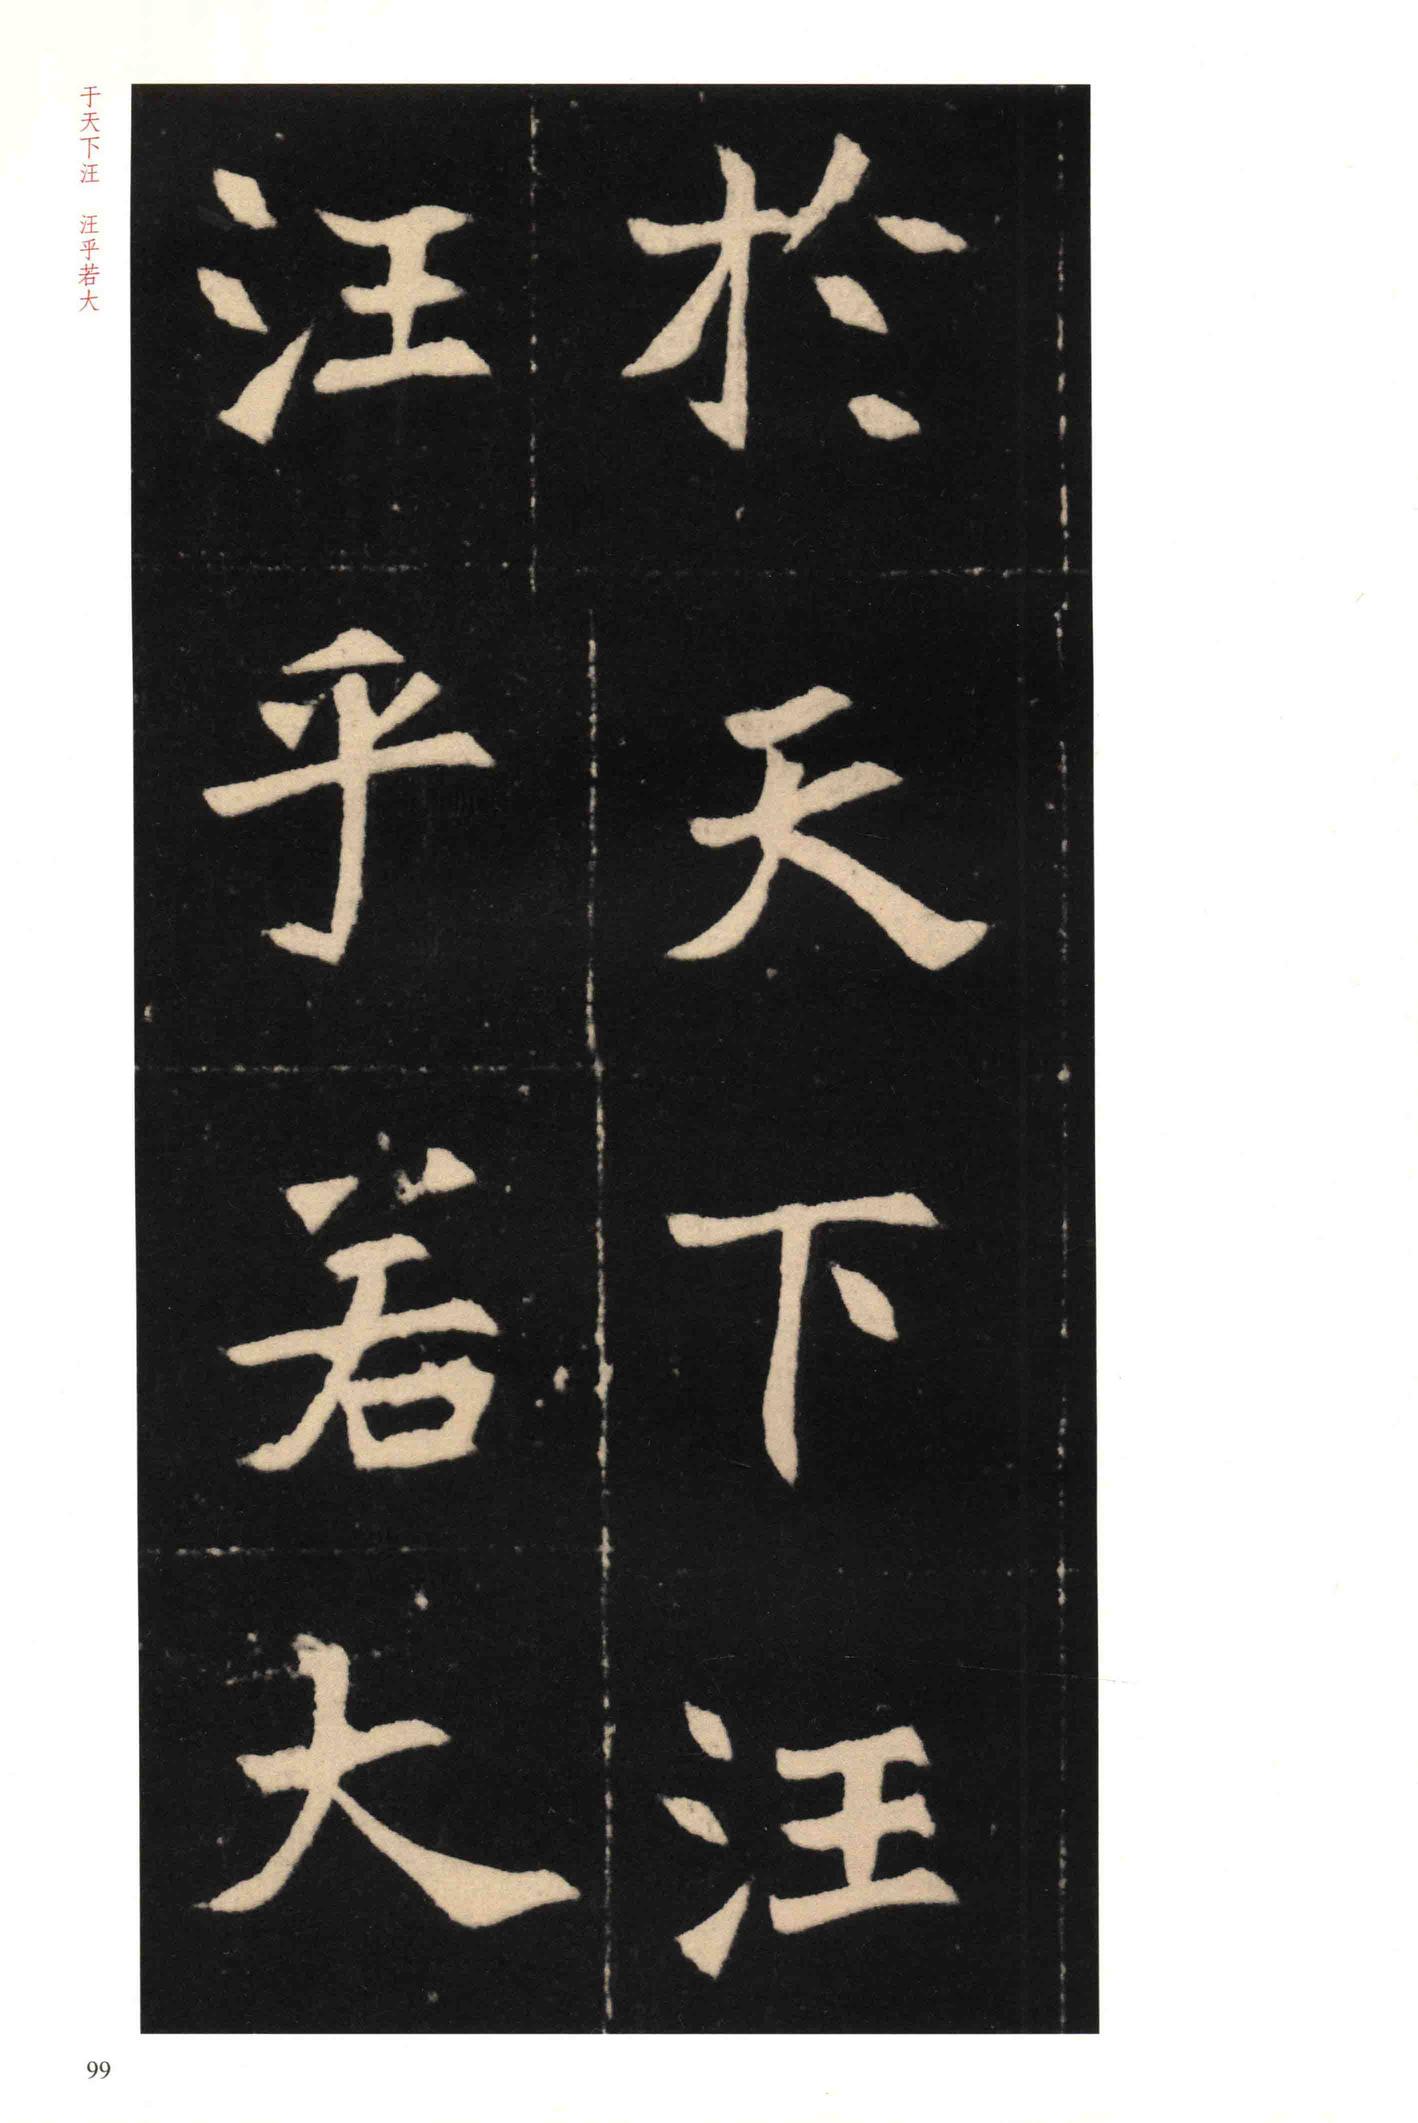 於天下汪
汪乎若大
于天下汪　汪乎若大
99